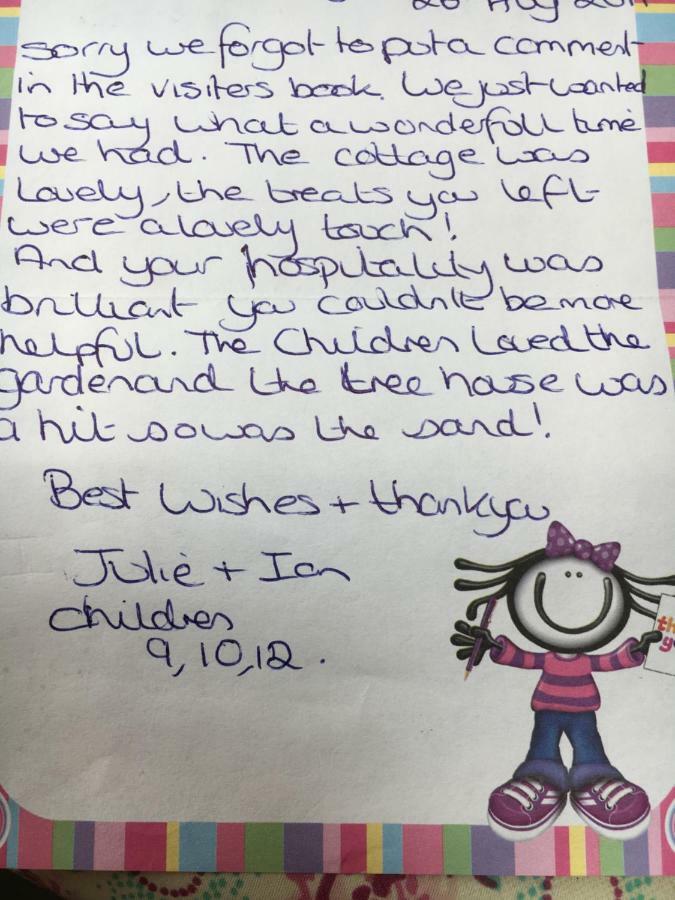 sorry we forgot to put a comment
in the visiters book. We just wanted
to say what a wonderfull time
we had. The cottage was
Lovely, the treats you left
were a lovely touch!
And your hospitality was
brilliant you couldn't be more
helpful. The Children Loved the
garden and the tree house was
a hit so was the sand!
Best Wishes + thankyou
Julie + Ian
children
9, 10, 12.